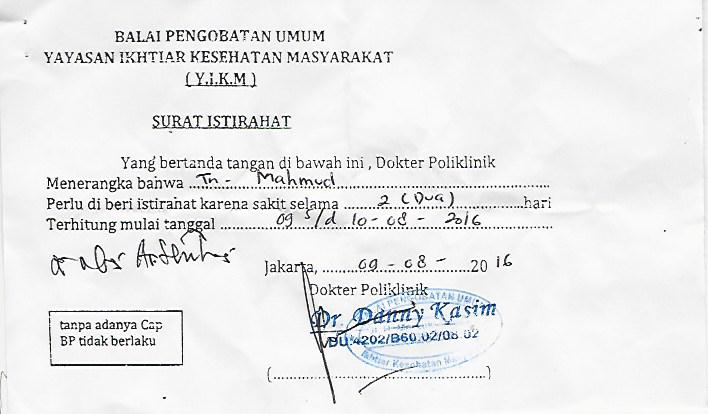 BALAI PENGOBATAN UMUM
YAYASAN IKHTIAR KESEHATAN MASYARAKAT
( Y.I.K.M )
SURAT ISTIRAHAT
Yang bertanda tangan di bawah ini , Dokter Poliklinik
Menerangka bahwa ... Tn - Mahmud ...
Perlu di beri istirahat karena sakit selama ... 2 ( Dua ) ... hari
Terhitung mulai tanggal ... 09 s/d 10 - 08 - 2016
Jakarta, ... 09 - 08 - ... 20 16
Dokter Poliklinik
Dr. Danny Kasim
4202/B60.02/08 02
Ikhtiar Kesehatan
tanpa adanya Cap
BP tidak berlaku
(...)